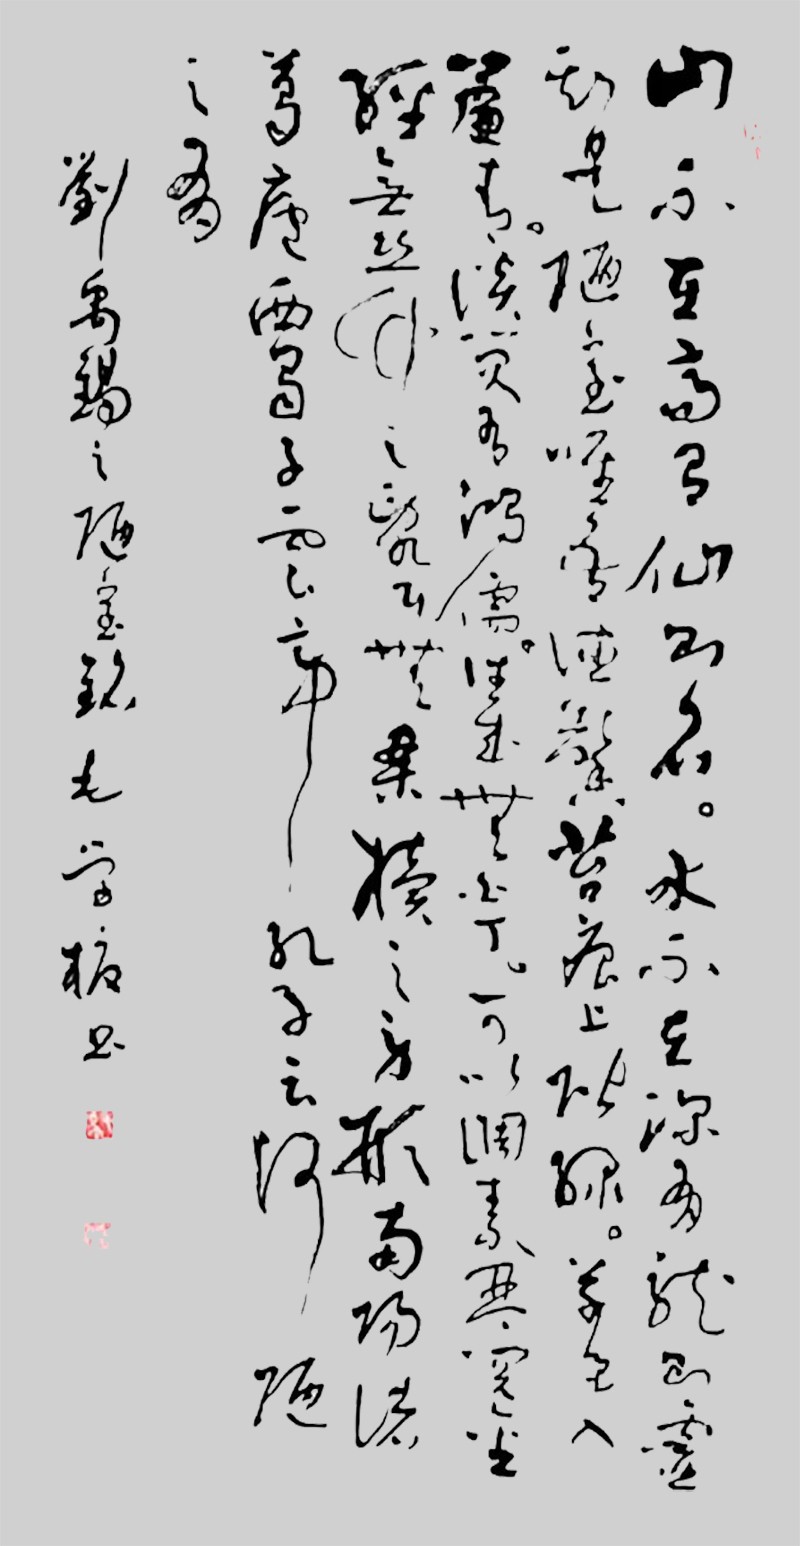 山不在高有仙則名。水不在深有龍則靈
斯是陋室唯吾德馨苔痕上階綠。草色入
簾青。談笑有鴻儒。往來無白丁。可以調素琴閱金
經無絲竹之亂耳無案牘之勞形南陽諸
葛廬西蜀子雲亭孔子云何陋
之有
劉禹錫之陋室銘 书